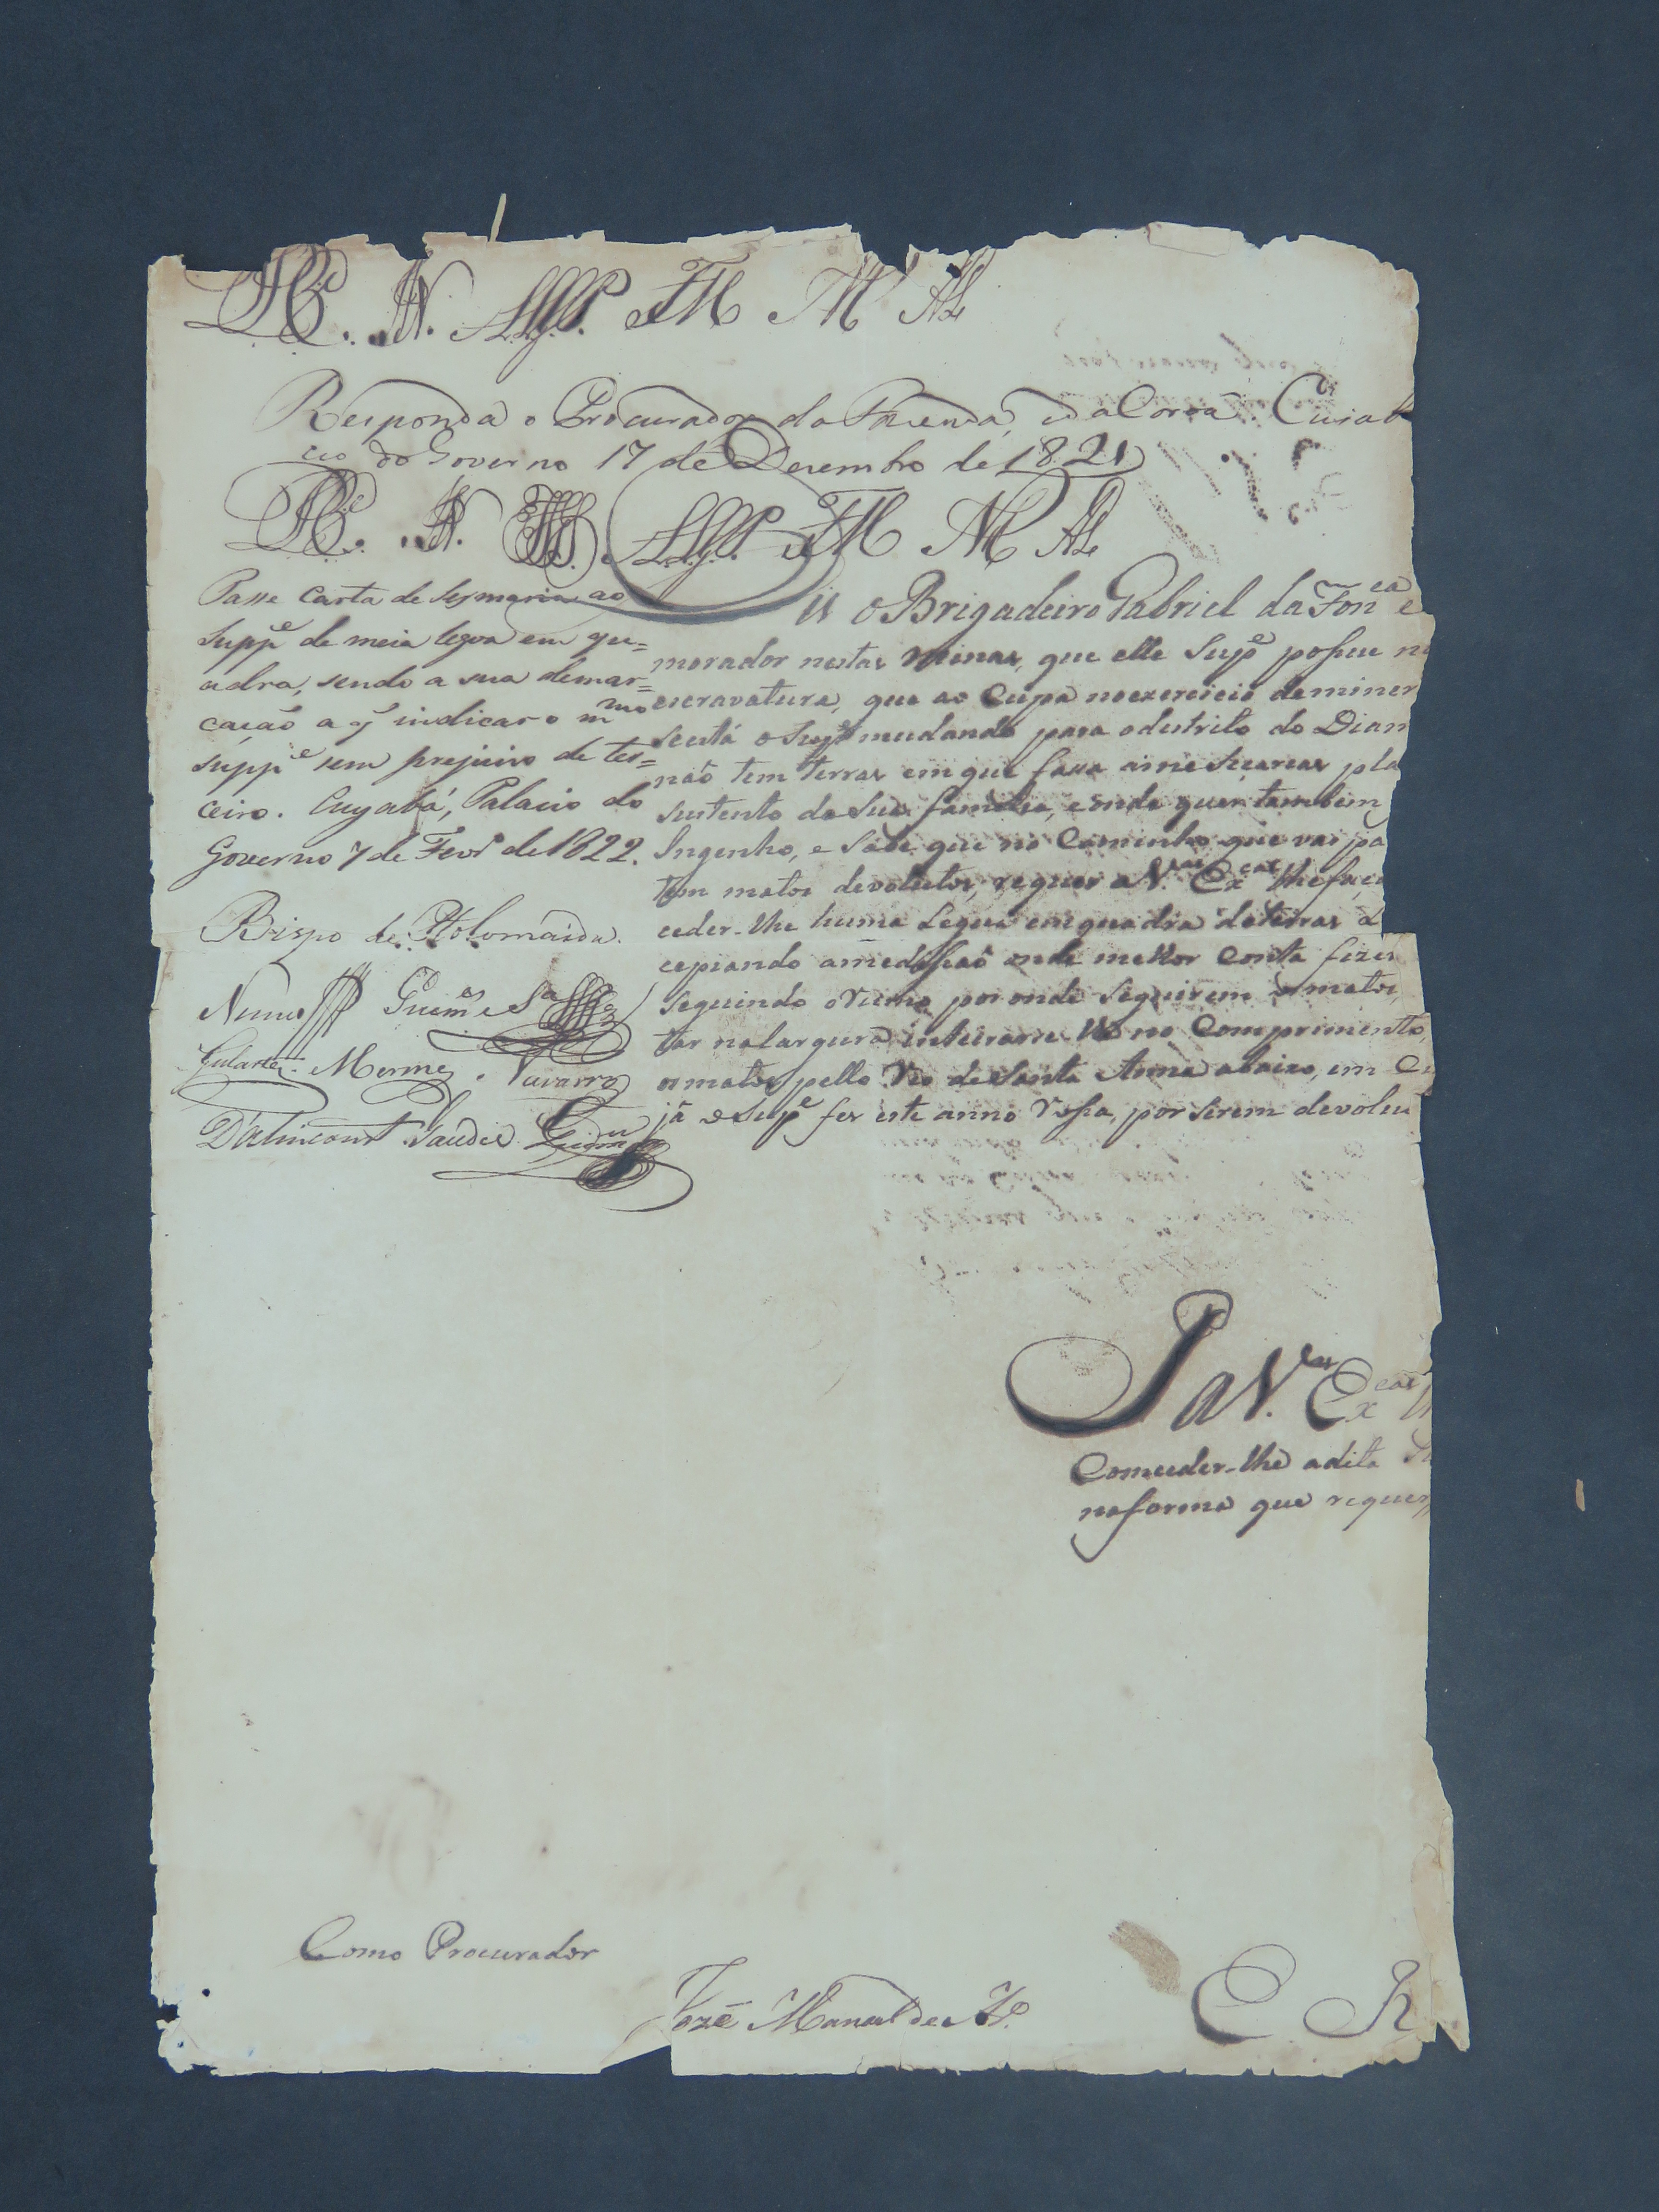 Responda o Procurador da Fazenda, e da Coroa. Cuiab
cio do Governo 17 de Dezembro de 1821
Passe Carta de Sesmaria ao
Supp.e de meia legoa em qu=
adra, sendo a sua demar=
cação a q̃ indicar o m.mo
Supp.e sem prejuizo de ter=
ceiro. Cuyabá, Palacio do
Governo 7 de Fevr.o de 1822.
Bispo de Ptolomaida.
Nunes Guim.es S.a
Gularte. Mermes. Navarro
D'alincourt Saudee
O Brigadeiro Gabriel da Fon.ca e
morador nestas Minas, que elle Sup.e possue n
escravatura, que ao Cupa no exercicio de miner
está o Sup.e mudando para o destrito do Diam
não tem terras em que fassa as plan
sustento da Sua familia, e onde quer tambem
Ingenho, e Sabe que no Caminho que vai pa
tem matos devolutos, requer a V.as Ex.cas lhe faça
ceder-lhe huma Legua em quadra de terras d
cepiando a medissão onde melhor Conta fizer
Seguindo o Rumo por onde Seguirem os matos,
tar na largura inteirarse lhe no Comprimento,
os matos pello Rio de Santa Anna abaixo, em
já o Sup.e fes este anno Rossa, por Serem devolu
P a V.as Ex.cas
Comceder-lhe a dita
na forma que requer
Como Procurador
Jozé Manoel de
E R